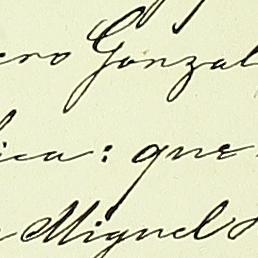 ero Gonzal
ica: que
Miguel